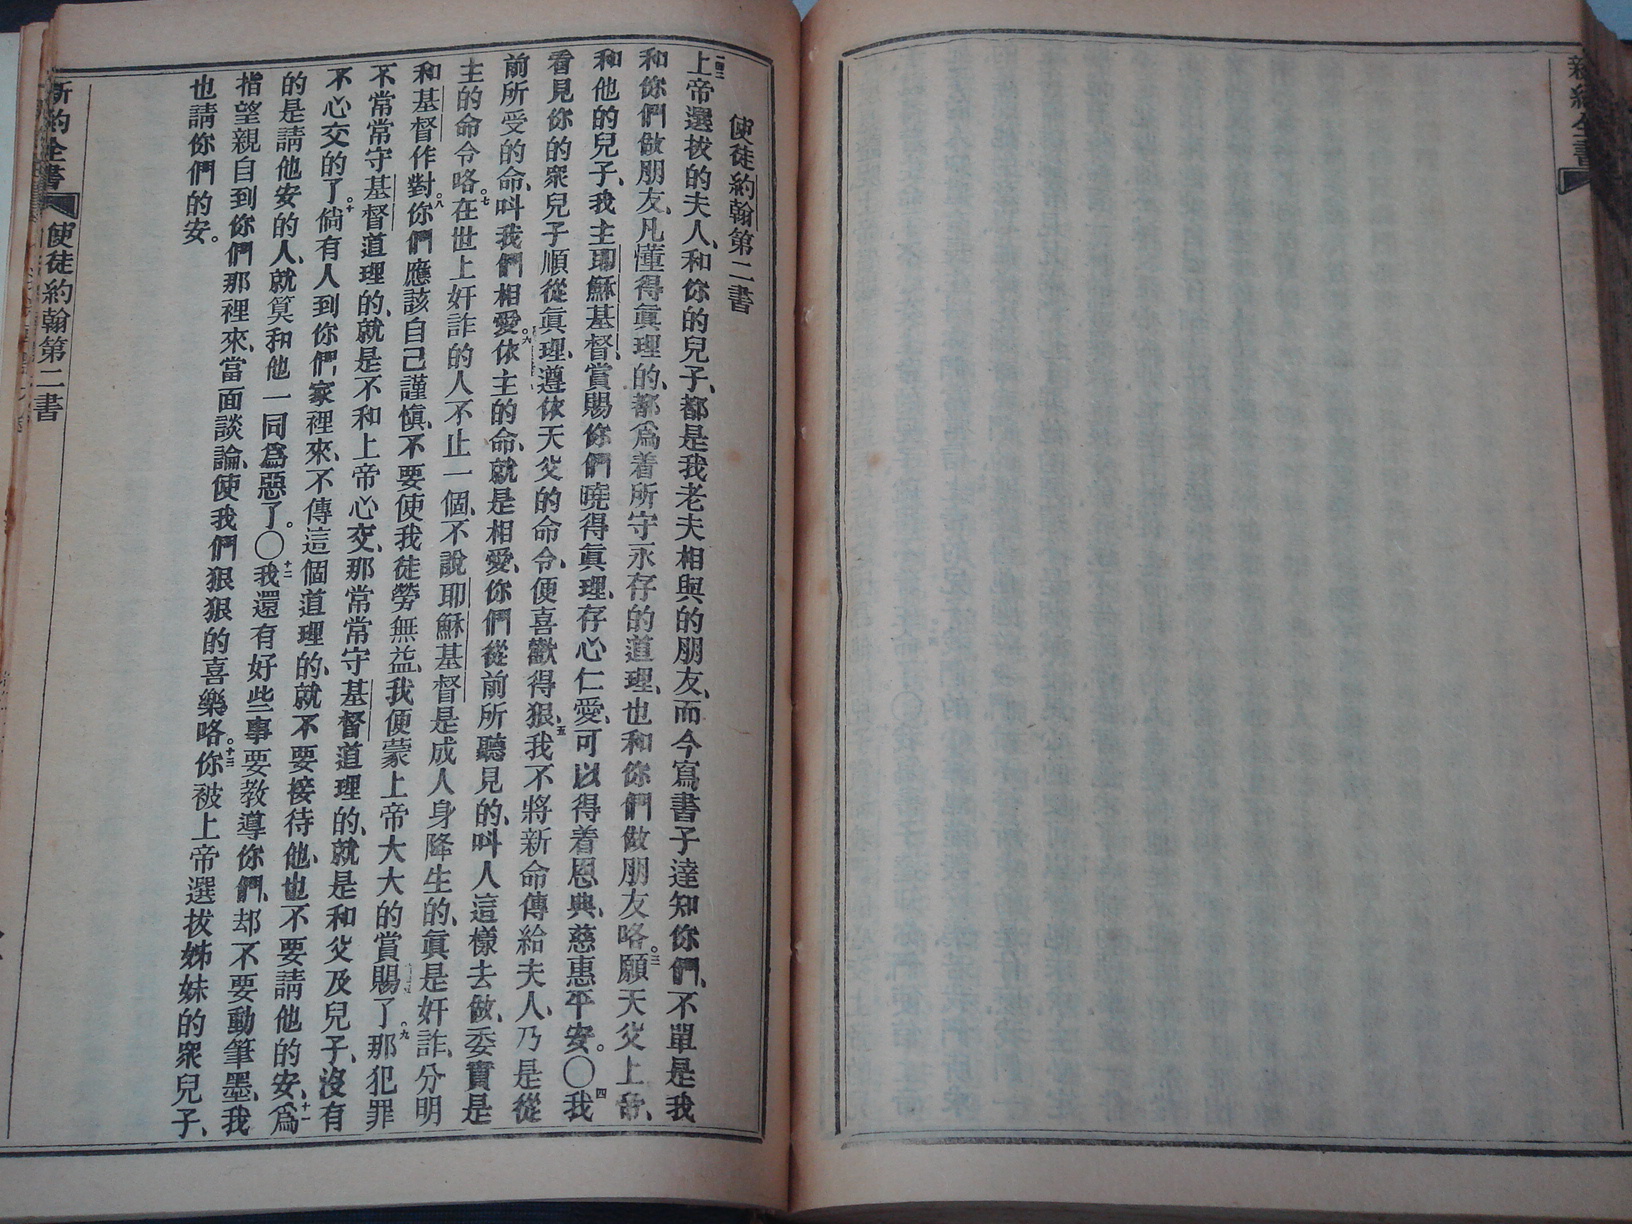 新約全書
使徒約翰第二書
上帝選拔的夫人、和你的兒子、都是我老夫相與的朋友、而今寫書子達知你們、不單是我
和你們做朋友、凡懂得眞理的、都爲着所守永存的道理、也和你們做朋友咯。三願天父上帝、
和他的兒子、我主耶穌基督、賞賜你們曉得眞理、存心仁愛、可以得着恩典、慈惠平安。〇四我
看見你的衆兒子順從眞理、遵依天父的命令、便喜歡得狠、五我不將新命傳給夫人、乃是從
前所受的命、叫我們相愛。六依主的命、就是相愛、你們從前所聽見的、叫人這樣去做、委實是
主的命令咯。七在世上奸詐的人不止一個、不說耶穌基督是成人身降生的、眞是奸詐、分明
和基督作對。八你們應該自己謹愼、不要使我徒勞無益、我便蒙上帝大大的賞賜了。九那犯罪
不常常守基督道理的、就是不和上帝心交、那常常守基督道理的、就是和父及兒子、沒有
不心交的了。十倘有人到你們家裡來、不傳這個道理的、就不要接待他、也不要請他的安、十一爲
的是請他安的人、就算和他一同爲惡了。〇十二我還有好些事要教導你們、却不要動筆墨、我
指望親自到你們那裡來、當面談論、使我們狠狠的喜樂咯。十三你被上帝選拔姊妹的衆兒子、
也請你們的安。
新約全書 使徒約翰第二書